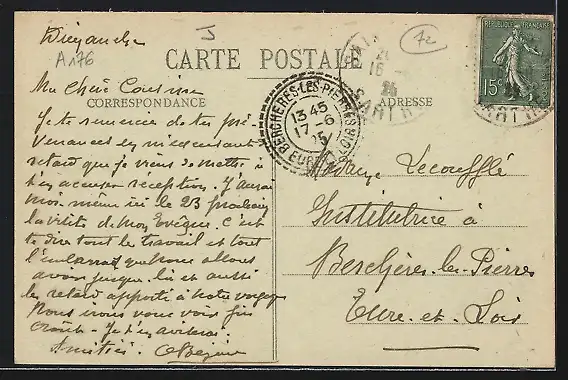 Dizanche
A176
J
CARTE POSTALE
Ma Chère Cousine
CORRESPONDANCE
ADRESSE
Je te remercie de ta pré-
venances en m'excusant
retard que je viens de mettre à
t'en accuser réception. J'aurai
moi-même ici le 23 prochain
la visite de mon Evêque. C'est
te dire tout le travail et tout
l'embarras que nous allons
avoir jusque là et aussi
le retard apporté à notre voyage
Nous nous vous voir fin
Je t'en aviserai.
Amitiés.
REPUBLIQUE FRANCAISE
15c
BERCHERES-LES-PIERRES
13 45
17-6
25
EURE
LOIR
16
25
SARTHE
Madame Lecoufflé
Institutrice à
Berchères-les-Pierres
Eure-et-Loir